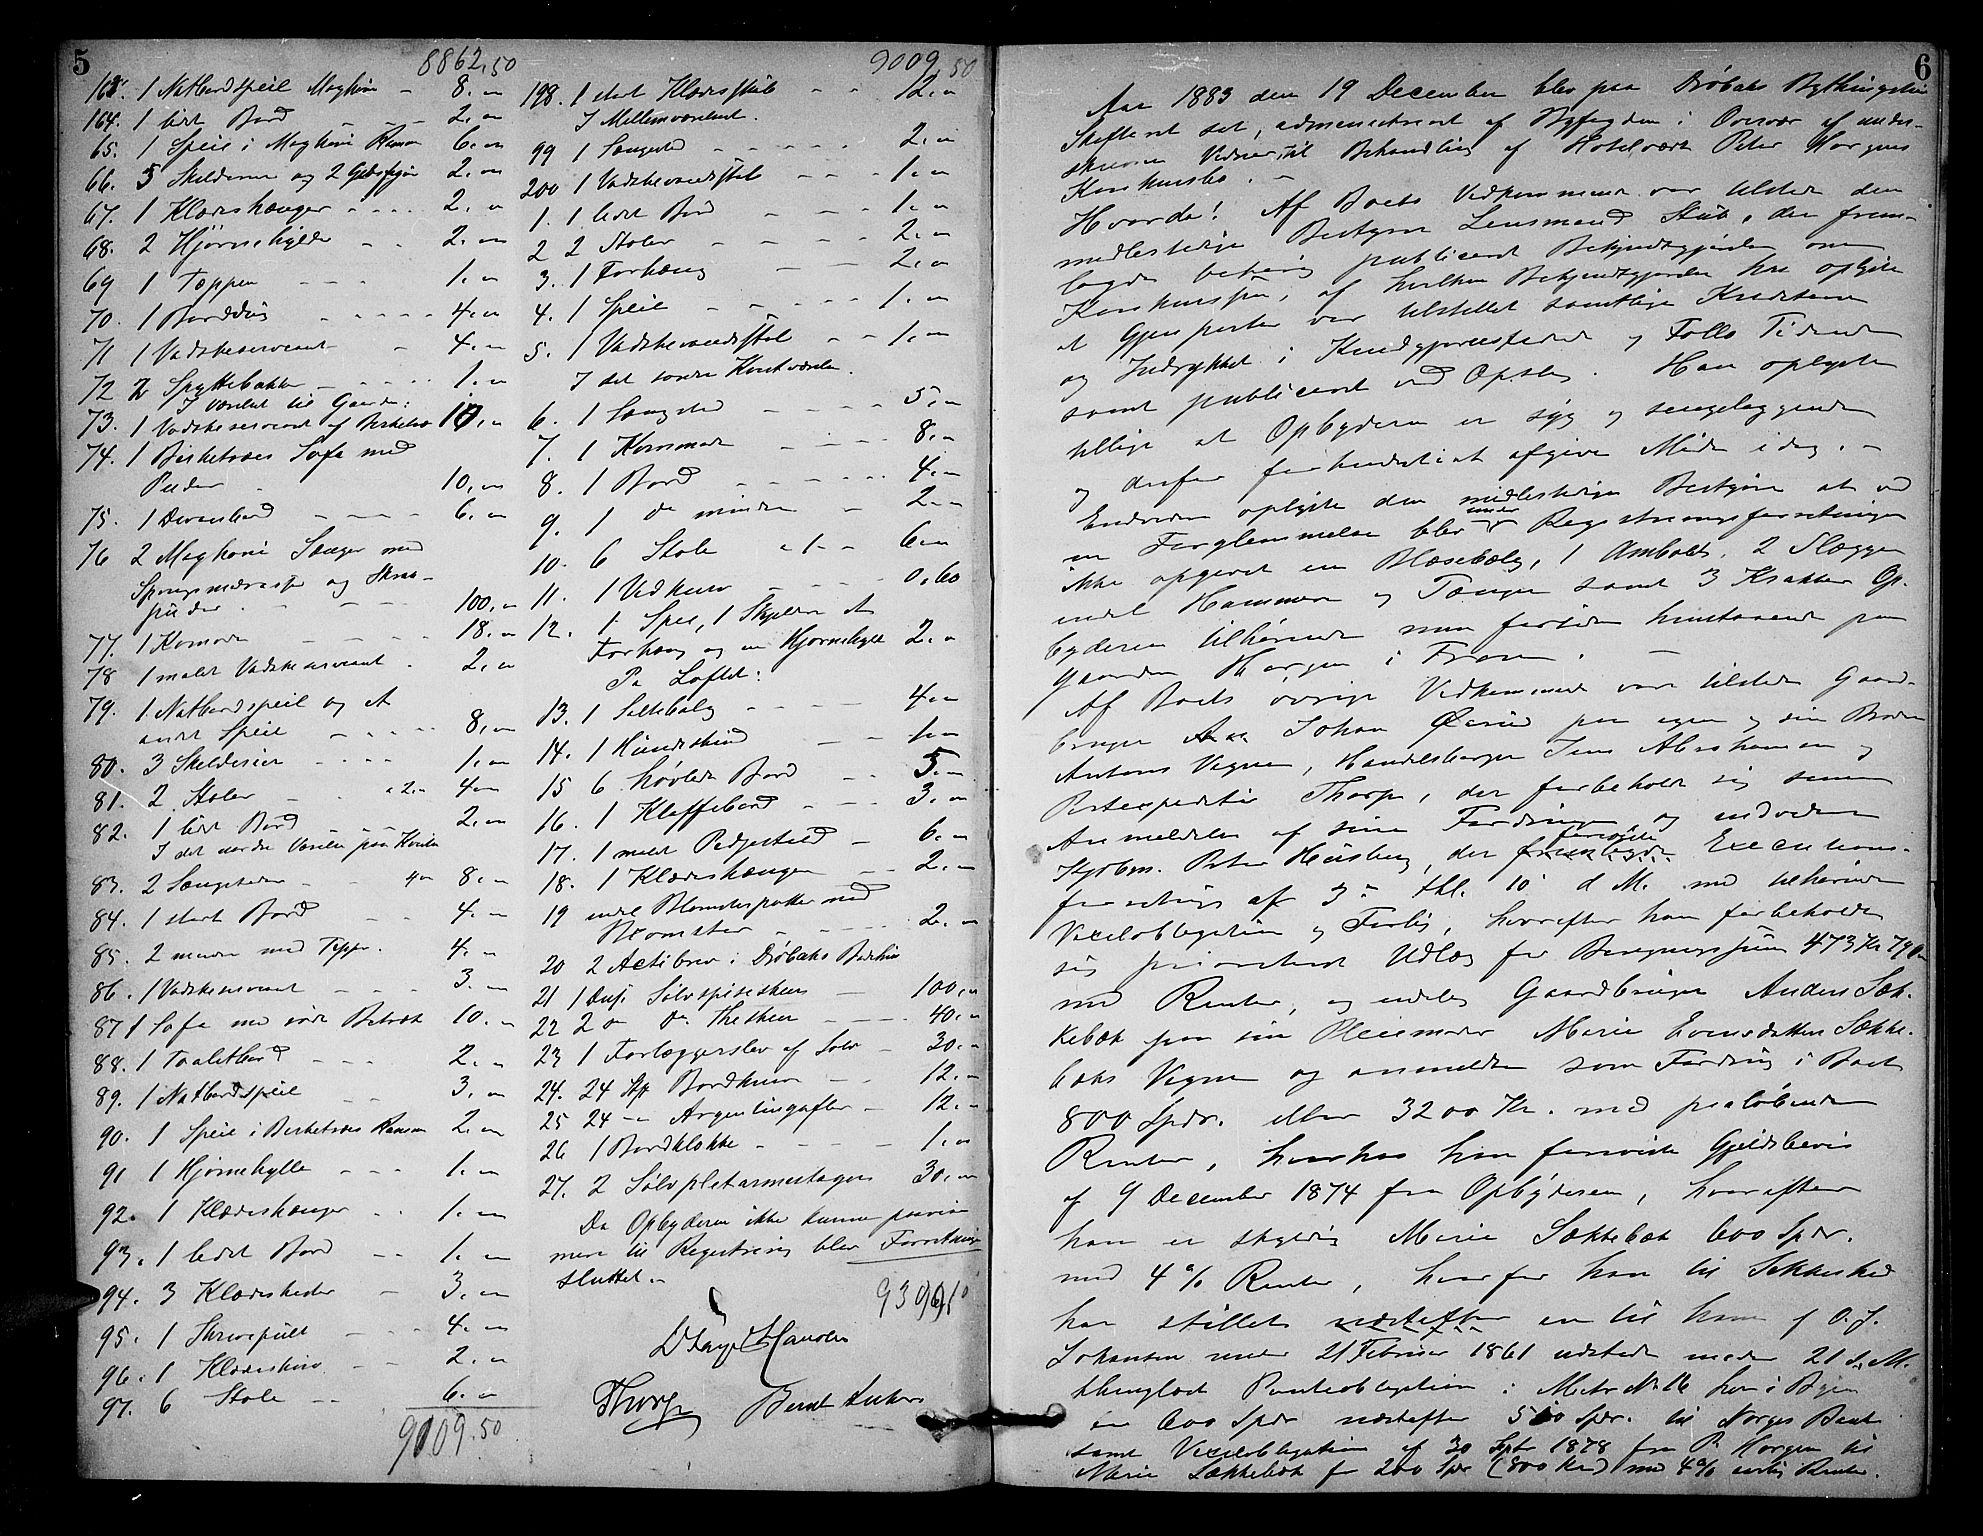 5
8862,50
163. 1 Natbordspeil Maghoni - 8. „
164. 1 lidt Bord 2. „
65. 1 Speil i Maghoni Ramme 6. „
66. 5 Skilderier og 2 2. „
67. 1 Klædeshænger 2. „
68. 2 Hjørnehylder 2. „
69 1 Teppe 1. „
70. 1 Borddug 4. „
71 1 Vadskeservant 4. „
72 2 Spyttebakker 1. „
I Værelset til Gaarden:
73. 1 Vadskeservant af Birketræ 10. „
74. 1 Birketræes Sofa med
Puder 10. „
75. 1 Divanbord 6. „
76 2 Maghoni Senger med
Springmadrasse og Skraa-
puder 100. „
77. 1 Komode 18. „
78 1 malet Vadskeservant 2. „
79. 1 Natbordspeil og et
andet Speil 8. „
80. 3 Skilderier 1. „
81. 2 Stoler a 2. „ 4. „
82. 1 lidt Bord 2. „
I det nordre Værelse paa Kvisten
83. 2 Sengesteder 4 „ 8. „
84. 1 stort Bord 4. „
85. 2 mindre med Teppe 4. „
86. 1 Vadskeservant 3. „
87 1 Sofa med rødt Betræk 10. „
88. 1 Toaletbord 2. „
89. 1 Natbordspeil 3. „
90. 1 Speil i Birketræes Ramme 2. „
91 1 Hjørnehylle 1. „
92. 1 Klædeshænger 1. „
93. 1 lidet Bord 1. „
94. 3 Klædesheder 3. „
95. 1 Skrivepult 4. „
96. 1 Klædeskuv 2. „
97. 6 Stole 6. „
9009.50
9009,50
198. 1 stort Klædesskab 12. „
I Mellemværelset.
99 1 Sengested 2. „
200 1 Vadskevandsstel 1. „
1. 1 lidet Bord 1. „
2 2 Stoler 2. „
3. 1 Forhæng 2. „
4. 1 Speil 1. „
5. 1 Vadskevandsstel 1. „
I det søndre Kvistværelse.
6. 1 Sengsted 5. „
7. 1 Kommode 8. „
8. 1 Bord 4. „
9. 1 do mindre 2. „
10. 6 Stole a 1. „ 6. „
11. 1 Vedkurv 0,60
12. 1 Speil, 1 Skilderi et
Forhæng og en Hjørnehylle 2. „
Pa Loftet:
13. 1 Seltebalg 4. „
14. 1 Hundeskind 1. „
15 6 høvlede Bord 5. „
16. 1 Klaffebord 3. „
17. 1 malet Pedgestald 6. „
18. 1 Klædeshænger 2. „
19 endel Blomsterpotter med
Blomster 2. „
20 2 Actiebrev i Drøbaks Badehus
21 1 Dusj. Sølvspiseskeer 100. „
22 2 do do Theskeer 40. „
23 1 Forlæggerslev af Sølv 30. „
24. 24 Stk Bordknive 12. „
25 24 - Argentingafler 12. „
26 1 Bordklokke 1. „
27. 2 Sølvpletarmestager 30. „
Da Opbyderen ikke kunne paavise
mere til Registrering blev Forretningen
sluttet. -
9399,10
Thorp Bernt Anker
6
Aar 1883 den 19 December blev paa Drøbaks Bythingstue
Skifteret sat, administreret af Byfogden i Overvær af under-
skrevne Vidner til Behandling af Hotelvært Peter Horgens
Konkursbo. -
Hvorda! Af Boets Vedkommende var tilstede den
midlertidige Bestyrer Lensmand Stub, der frem-
lagde behørig publiceret Bekjendtgjørelse om
Konkursen, af hvilken Bekjendtgjørelse han oplyste
at Gjenparter var tilstillet samtlige Kreditorer
og Indrykket i Kundgjørelsestidende og Follo Tidende
samt publiceret ved Opslag. Han oplyste
tillige at Opbyderen er syg og sengeliggende
og derfor forhindret i at afgive Møde idag. -
Endvidere oplyste den midlertidige Bestyrer at ved
en Forglemmelse blev under Registreringsforretningen
ikke opgivet en Blæsebælg, 1 Ambolt, 2 Slægger
endel Hammere og Tænger samt 3 Krakker Op-
byderen tilhørende men fortiden henstaaende paa
Gaarden Horgen i Fron. -
Af Boets øvrige Vedkommende vare tilstede Gaard-
bruger Johan paa egen og sin Broder
Antons Vegne, Handelsborger Jens Abrahamsen og
Postexpeditør Thorp, der forbeholdt sig senere
Anmeldelse af sine Fordringer og endvidere
Kjøbm. Peter Husberg, der foreviste Executions-
forretning af 3 „ thl. 10 d M. med tilhørende
Vexelobligation og Forlig, hvorefter han forbeholdt
sig prioriteret Udlæg for Beregningssum 473 Kr 79 Øre
med Renter, og endelig Gaardbruger Anders Sæk-
kebæk paa sin Pleiemoder Marie Evensdatter Sække-
bæks Vegne og anmeldte som Fordring i Boet
800 Spdr. eller 3200 Kr. med paaløbende
Renter, hvorhos han foreviste Gjeldsbevis
af 9 December 1874 fra Opbyderen, hvorefter
han er skyldig Marie Sækkebæk 600 Spdr.
med 4 % Renter, hvorfor han til Sikkerhed
har stillet næstefter en til ham af O. J.
Johansen under 21 Februar 1861 udstedt under 21 s. M.
thinglæst Panteobligation i Matr No 16 her i Byen
for 600 Spdr næstefter 500 Spdr. til Norges Bank
samt Vexelobligation af 30 Sptr 1878 fra P. Horgen til
Marie Sækkebæk for 200 Spdr (800 Kr) med 4 % aarlig Renter.